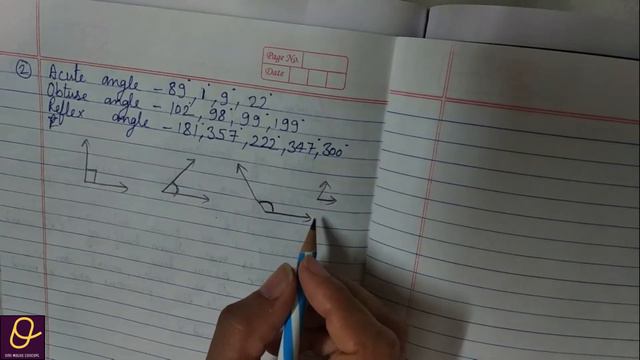 Page No.
Date
② Acute angle - 89°, 1°, 9°, 22°
Obtuse angle - 102°, 98°, 99°, 199°
Reflex angle - 181°, 357°, 222°, 347°, 300°
ONE MINUTE CONCEPT